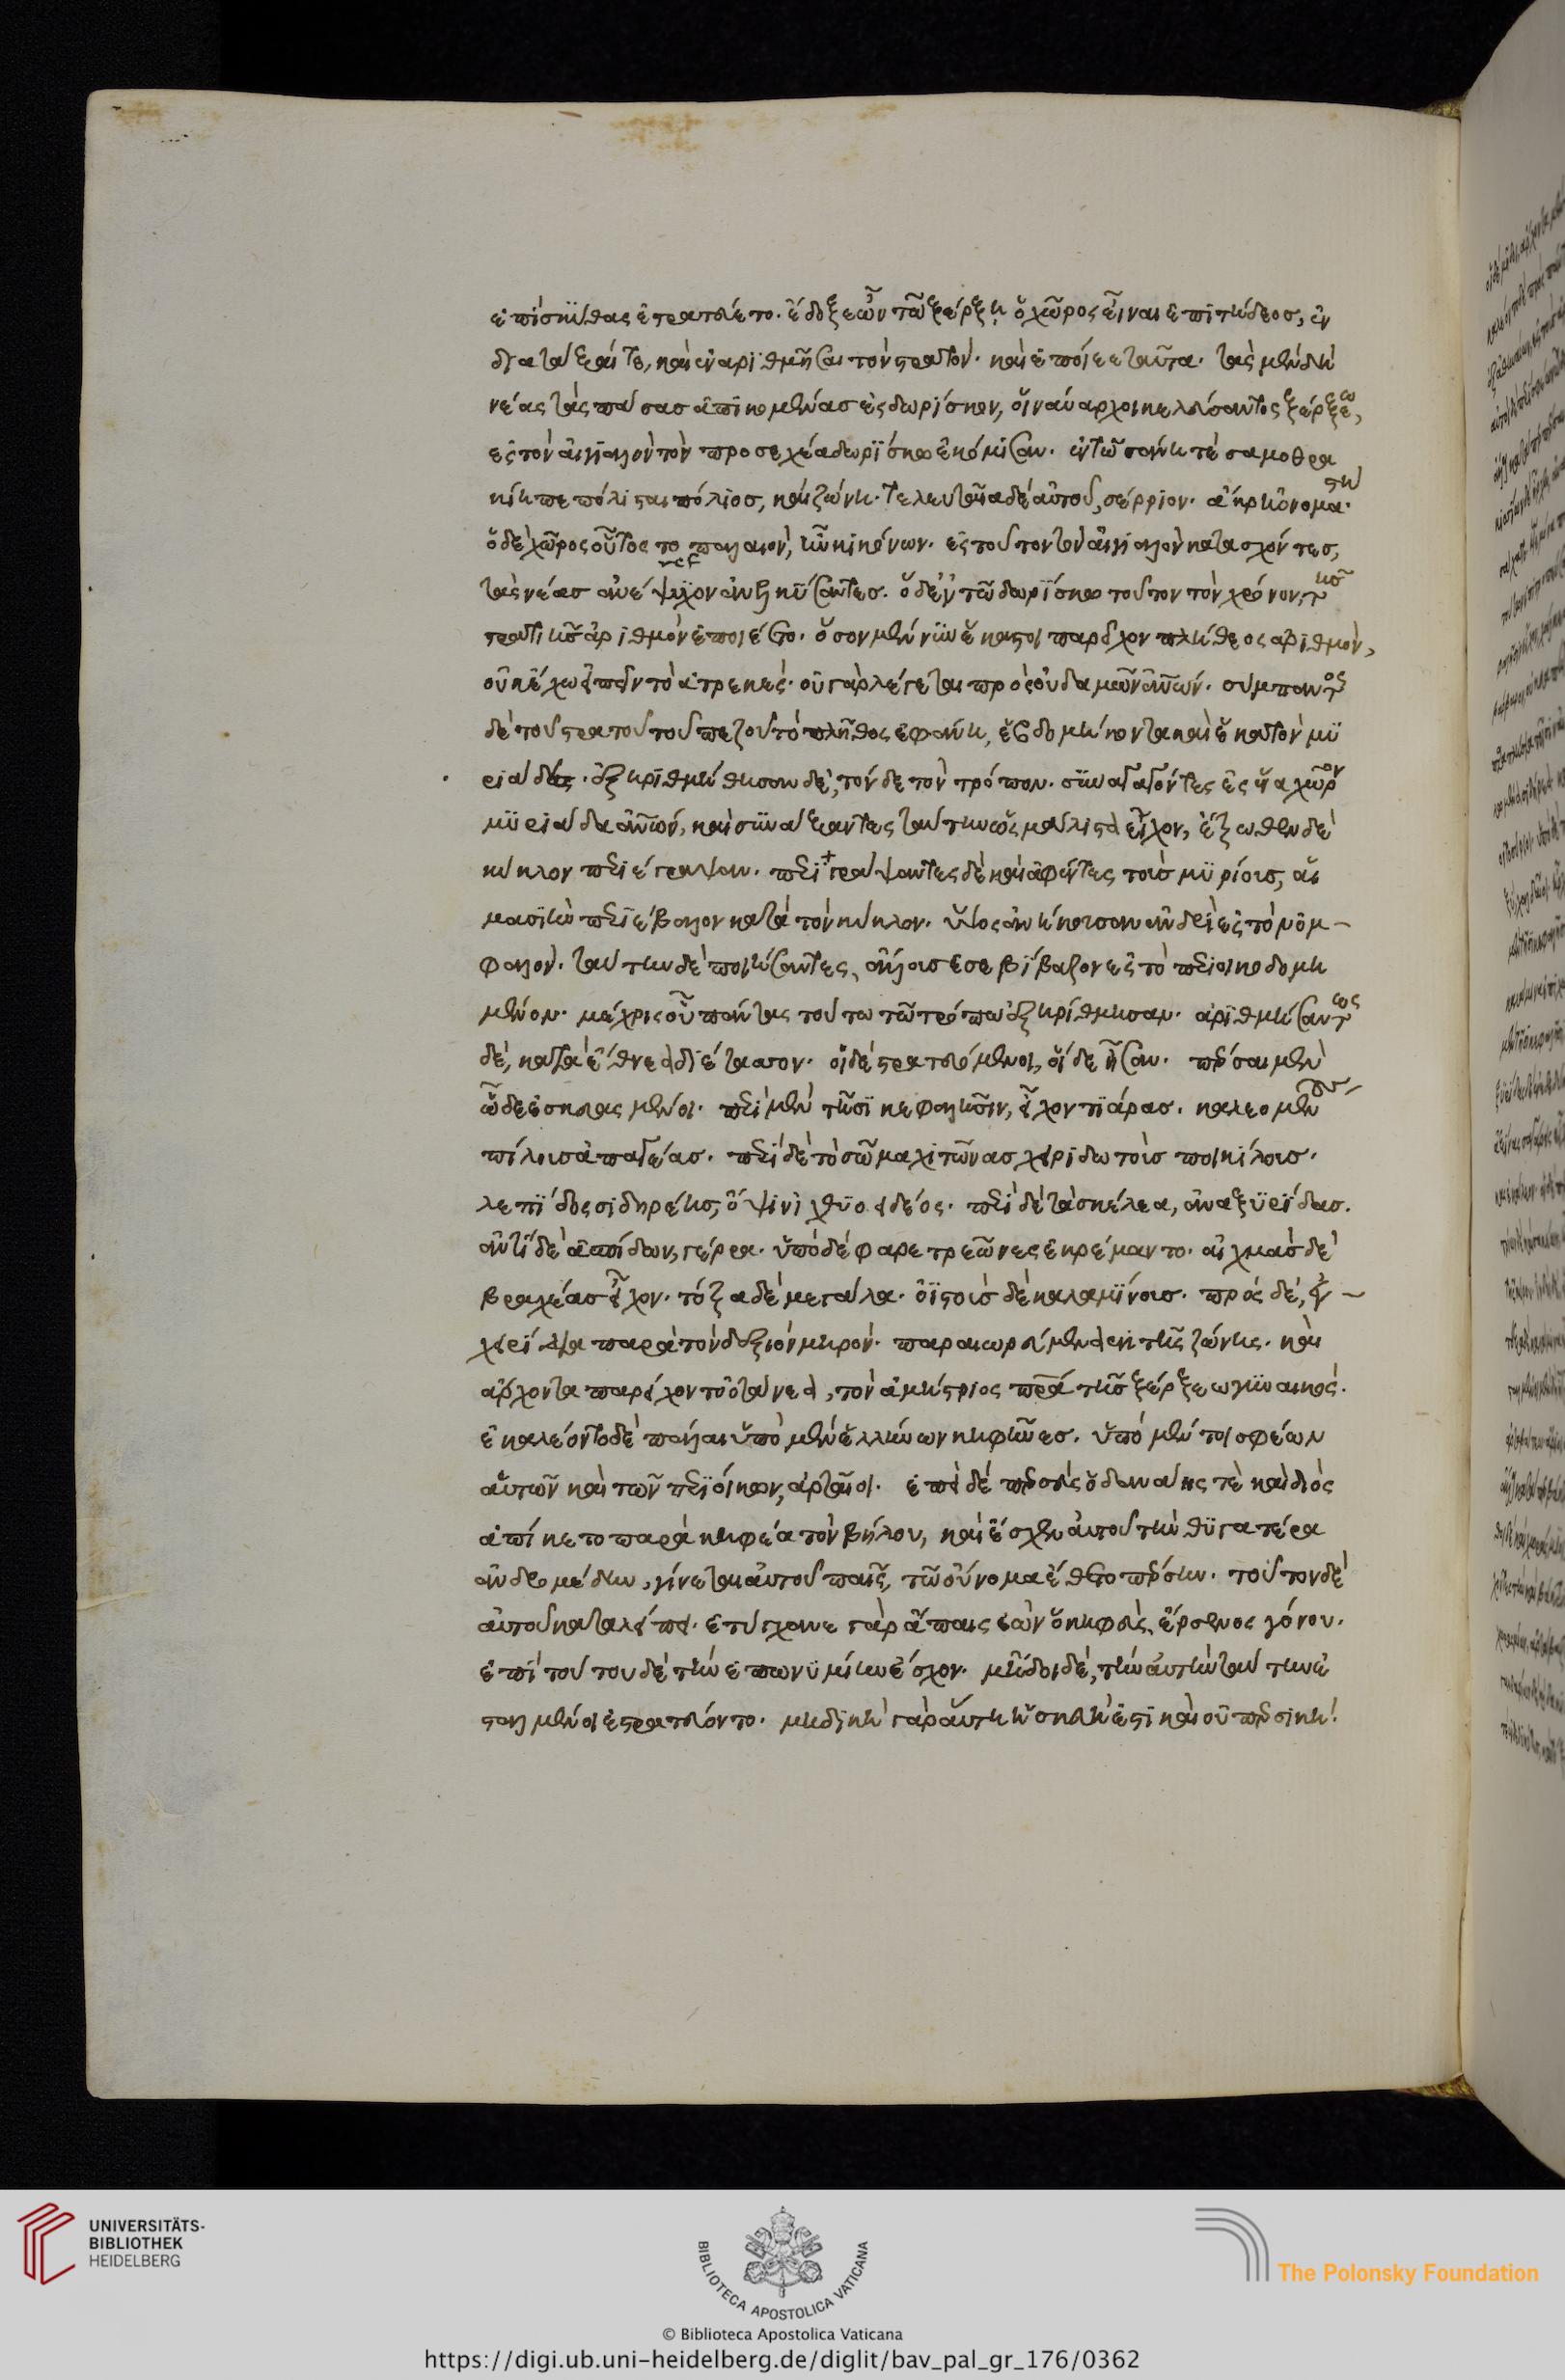 ἐπὶ σκύθας ἐστρατεύετο. ἔδοξε ὦν τῶ ξέρξῃ ὁ χῶρος εἶναι ἐπιτήδεος, ἐν
διατάξαι τε, καὶ ἐναριθμῆσαι τὸν στρατόν. καὶ ἐποίεε ταῦτα. τὰς μὲν δὴ
νέας τὰς πάσας ἀπικομένας ἐς δωρίσκον, οἱ ναύαρχοι κελεύσαντος ξέρξεω,
ἐς τὸν αἰγιαλὸν τὸν προσεχέα δωρίσκω ἐκόμισαν. ἐν τῶ σάνη τὲ σαμοθρα
κίη πεπόλισται πόλιος, καὶ ζώνη. τελευταῖα δὲ αὐτοῦ, σέρριον. ἄκρη ὀνομαστή.
ὁ δὲ χῶρος οὗτος το παλαιὸν, ἦν κικόνων. ἐς τοῦτον τὸν αἰγιαλὸν κατασχόντες,
τὰς νέας ἀνέψυχον ἀνελκύσαντες. ὁ δ' ἐν τῶ δωρίσκω τοῦτον τὸν χρόνον, τῆς
στρατιῆς ἀριθμὸν ἐποιέετο. ὅσον μέν νυν ἕκαστοι παρεῖχον πλήθεος ἀριθμὸν,
οὐκ ἔχω εἰπεῖν τὸ ἀτρεκές. οὐ γὰρ λέγεται πρὸς οὐδαμῶν ἀνῶν. σύμπαντος
δὲ τοῦ στρατοῦ τοῦ πεζοῦ τὸ πλῆθος ἐφάνη, ἑβδομήκοντα καὶ ἑκατὸν μυ
ριάδες. ἐξηριθμήθησαν δὲ, τόνδε τὸν τρόπον. συναγαγόντες ἐς ἕνα χῶρον
μυριάδα ἀνῶν, καὶ συνάξαντες ταύτην ὡς μάλιστα εἶχον, ἔξωθεν δὲ
κύκλον περιέγραψαν. περιγράψαντες δὲ καὶ ἀφέντες τοὺς μυρίους, αἱ
μασιὴν περιέβαλον κατὰ τὸν κύκλον. ὕψος ἀνήκουσαν ἀνδρὶ ἐς τὸν ὀμ-
φαλόν. ταύτην δὲ ποιήσαντες, ἄλλους ἐσεβίβαζον ἐς τὸ περιοικοδομη
μένον. μέχρις οὗ πάντας τούτω τῶ τρόπω ἐξηρίθμησαν. ἀριθμήσαντες
δὲ, κατὰ ἔθνεα διέτασσον. οἱ δὲ στρατευόμενοι, οἵδε ἦσαν. πέρσαι μὲν
ὧδε ἐσκευασμένοι. περὶ μὲν τῆσι κεφαλῆσιν, εἶχον τιάρας. καλεομένους
πίλους ἀπαγέας. περὶ δὲ τὸ σῶμα χιτῶνας χειριδωτοὺς ποικίλους.
λεπίδος σιδηρέης, ὄψιν ἰχθυοειδέος. περὶ δὲ τὰ σκέλεα, ἀναξυρίδας.
ἀντὶ δὲ ἀσπίδων, γέρρα. ὑπὸ δὲ φαρετρεῶνες ἐκρέμαντο. αἰχμὰς δὲ
βραχέας εἶχον. τόξα δὲ μεγάλα. ὀϊστοὺς δὲ καλαμίνους. πρὸς δὲ, ἐγ-
χειρίδια παρὰ τὸν δεξιὸν μηρόν. παραιωρεύμενα ἐκ τῆς ζώνης. καὶ
ἄρχοντα παρείχοντο ὀτάνεα, τὸν ἀμήστριος πρα τῆς ξέρξεω γυναικός.
ἐκαλέοντο δὲ πάλαι ὑπὸ μὲν ἑλλήνων κηφῆνες. ὑπὸ μέν τοι σφέων
αὐτῶν καὶ τῶν περιοίκων, ἀρταῖοι. ἐπεὶ δὲ περσεὺς ὁ δανάης τὲ καὶ διὸς
ἀπίκετο παρὰ κηφέα τὸν βήλου, καὶ ἔσχεν αὐτοῦ τὴν θυγατέρα
ἀνδρομέδην, γίνεται αὐτοῦ παῖς, τῶ οὔνομα ἔθετο πέρσην. τοῦτον δὲ
αὐτοῦ καταλείπει. ἐτύγχανε γὰρ ἄπαις ἐὼν ὁ κηφεὺς, ἔρσενος γόνου.
ἐπὶ τούτου δὲ τὴν ἐπωνυμίην ἔσχον. μῆδοι δὲ, τὴν αὐτὴν ταύτην ἐ
σταλμένοι ἐστρατεύοντο. μηδικὴ γὰρ αὕτη ἡ σκευή ἐστι καὶ οὐ περσική.
UNIVERSITÄTS-
BIBLIOTHEK
HEIDELBERG
BIBLIOTECA APOSTOLICA VATICANA
© Biblioteca Apostolica Vaticana
The Polonsky Foundation
https://digi.ub.uni-heidelberg.de/diglit/bav_pal_gr_176/0362